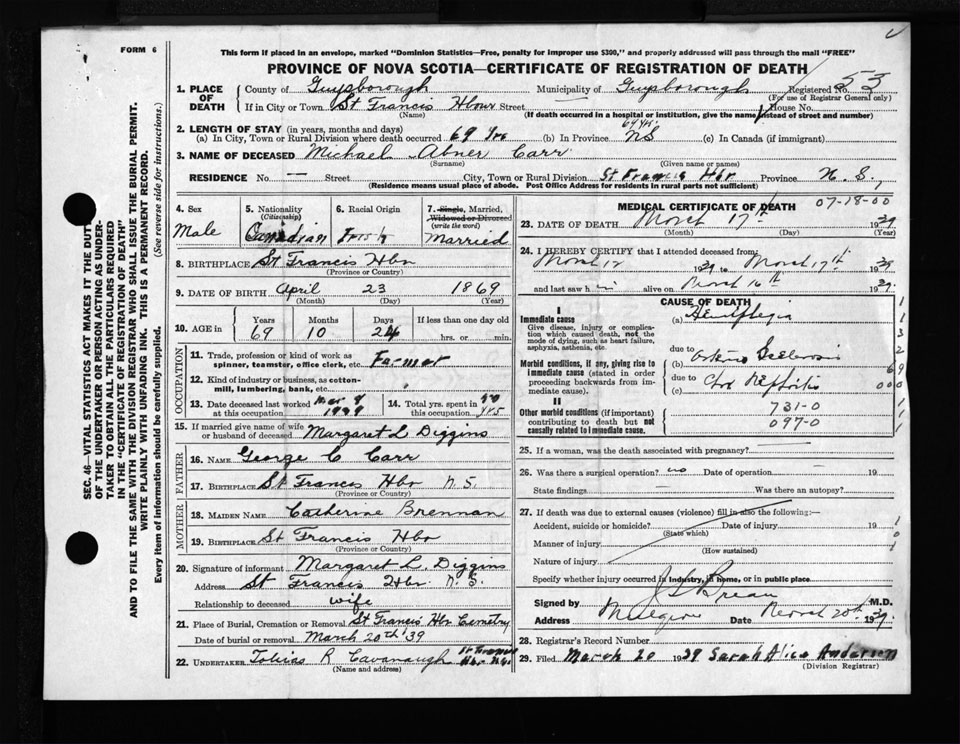 FORM 6
This form if placed in an envelope, marked "Dominion Statistics—Free, penalty for improper use $300," and properly addressed will pass through the mail "FREE"
PROVINCE OF NOVA SCOTIA—CERTIFICATE OF REGISTRATION OF DEATH
1. PLACE OF DEATH County of Guysborough Municipality of Guysborough Registered No. 53
(For use of Registrar General only)
If in City or Town St Francis Hbour Street House No.
(Name) (If death occurred in a hospital or institution, give the name instead of street and number)
2. LENGTH OF STAY (in years, months and days)
(a) In City, Town or Rural Division where death occurred 69 Yrs (b) In Province 69 yrs. NS (c) In Canada (if immigrant)
3. NAME OF DECEASED Michael Abner Carr
(Surname) (Given name or names)
RESIDENCE No. — Street City, Town or Rural Division St Francis Hbr Province N. S.
(Residence means usual place of abode. Post Office Address for residents in rural parts not sufficient)
4. Sex Male
5. Nationality (Citizenship) Canadian
6. Racial Origin Irish
7. Single, Married, Widowed or Divorced (write the word) Married
8. BIRTHPLACE St Francis Hbr
(Province or Country)
9. DATE OF BIRTH April 23 1869
(Month) (Day) (Year)
10. AGE in Years Months Days If less than one day old
69 10 24 hrs. or min.
OCCUPATION
11. Trade, profession or kind of work as spinner, teamster, office clerk, etc. Farmer
12. Kind of industry or business, as cotton-mill, lumbering, bank, etc.
13. Date deceased last worked at this occupation Mar 8 1939
14. Total yrs. spent in this occupation 50 yrs
15. If married give name of wife or husband of deceased Margaret L Diggins
FATHER
16. Name George C Carr
17. Birthplace St Francis Hbr N S.
(Province or Country)
MOTHER
18. Maiden Name Catherine Brennan
19. Birthplace St Francis Hbr
(Province or Country)
20. Signature of informant Margaret L. Diggins
Address St Francis Hbr. N. S.
Relationship to deceased wife
21. Place of Burial, Cremation or Removal St Francis Hbr Cemetry
Date of burial or removal March 20th '39
22. Undertaker Tobias R Cavanaugh St Francis Hbr
(Name and address)
MEDICAL CERTIFICATE OF DEATH 07-18-00
23. DATE OF DEATH March 17th 1939
(Month) (Day) (Year)
24. I HEREBY CERTIFY that I attended deceased from
March 12 1939 to March 17th 1939
and last saw him alive on March 16th 1939.
CAUSE OF DEATH
I
Immediate cause (a) Hemiplegia
Give disease, injury or complication which caused death, not the mode of dying, such as heart failure, asphyxia, asthenia, etc.
Morbid conditions, if any, giving rise to immediate cause (stated in order proceeding backwards from immediate cause).
due to (b)
due to (c)
II
Other morbid conditions (if important) contributing to death but not causally related to immediate cause.
731-0
097-0
25. If a woman, was the death associated with pregnancy?
26. Was there a surgical operation? no Date of operation — 19
State findings — Was there an autopsy?
27. If death was due to external causes (violence) fill in also the following:—
Accident, suicide or homicide? Date of injury 19
(State which)
Manner of injury
(How sustained)
Nature of injury
Specify whether injury occurred in industry, in home, or in public place
Signed by M.D.
Address Mulgrave Date March 20th 1939
28. Registrar's Record Number
29. Filed March 20 1939 Sarah Alice Anderson
(Division Registrar)
SEC. 46—VITAL STATISTICS ACT MAKES IT THE DUTY
OF THE UNDERTAKER OR PERSON ACTING AS UNDER-
TAKER TO OBTAIN ALL THE PARTICULARS REQUIRED
IN THE "CERTIFICATE OF REGISTRATION OF DEATH"
AND TO FILE THE SAME WITH THE DIVISION REGISTRAR WHO SHALL ISSUE THE BURIAL PERMIT.
WRITE PLAINLY WITH UNFADING INK. THIS IS A PERMANENT RECORD.
Every item of information should be carefully supplied. (See reverse side for instructions.)